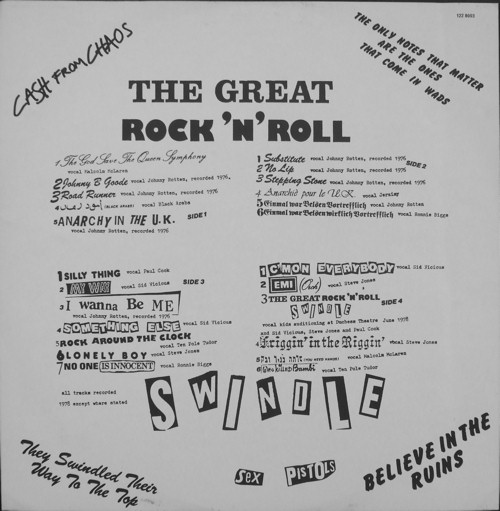 122 8093
CASH FROM CHAOS
THE ONLY NOTES THAT MATTER
ARE THE ONES
THAT COME IN WADS
THE GREAT
ROCK 'N' ROLL
1 The God Save The Queen Symphony
vocal Malcolm McLaren
2 Johnny B Goode vocal Johnny Rotten, recorded 1976,
3 Road Runner vocal Johnny Rotten, recorded 1976
4 (BLACK ARABS) vocal Black Arabs
5 ANARCHY IN THE U.K. SIDE 1
vocal Johnny Rotten, recorded 1976
1 Substitute vocal Johnny Rotten, recorded 1976
SIDE 2
2 No Lip vocal Johnny Rotten, recorded 1976
3 Stepping Stone vocal Johnny Rotten, recorded 1976
4 Anarchie pour le U.K. vocal Jeremy
5 Einmal war Belsen Vortrefflich vocal Johnny Rotten
6 Einmal war Belsen wirklich Vortrefflich vocal Ronnie Biggs
1 SILLY THING vocal Paul Cook
2 MY WAY vocal Sid Vicious SIDE 3
3 I wanna Be ME
vocal Johnny Rotten, recorded 1976
4 SOMETHING ELSE vocal Sid Vicious
5 ROCK AROUND THE CLOCK
vocal Ten Pole Tudor
6 LONELY BOY vocal Steve Jones
7 NO ONE IS INNOCENT vocal Ronnie Biggs
all tracks recorded
1978 except where stated
1 C'MON EVERYBODY vocal Sid Vicious
2 EMI (Orch) vocal Steve Jones
3 THE GREAT ROCK 'N' ROLL
SWINDLE SIDE 4
vocal kids auditioning at Duchess Theatre June 1978
and Sid Vicious, Steve Jones and Paul Cook
4 Friggin' in the Riggin' vocal Steve Jones
5 (YOU NEED HANDS) vocal Malcolm McLaren
6 Who Killed Bambi vocal Ten Pole Tudor
SWINDLE
They Swindled Their
Way To The Top
SEX PISTOLS
BELIEVE IN THE
RUINS